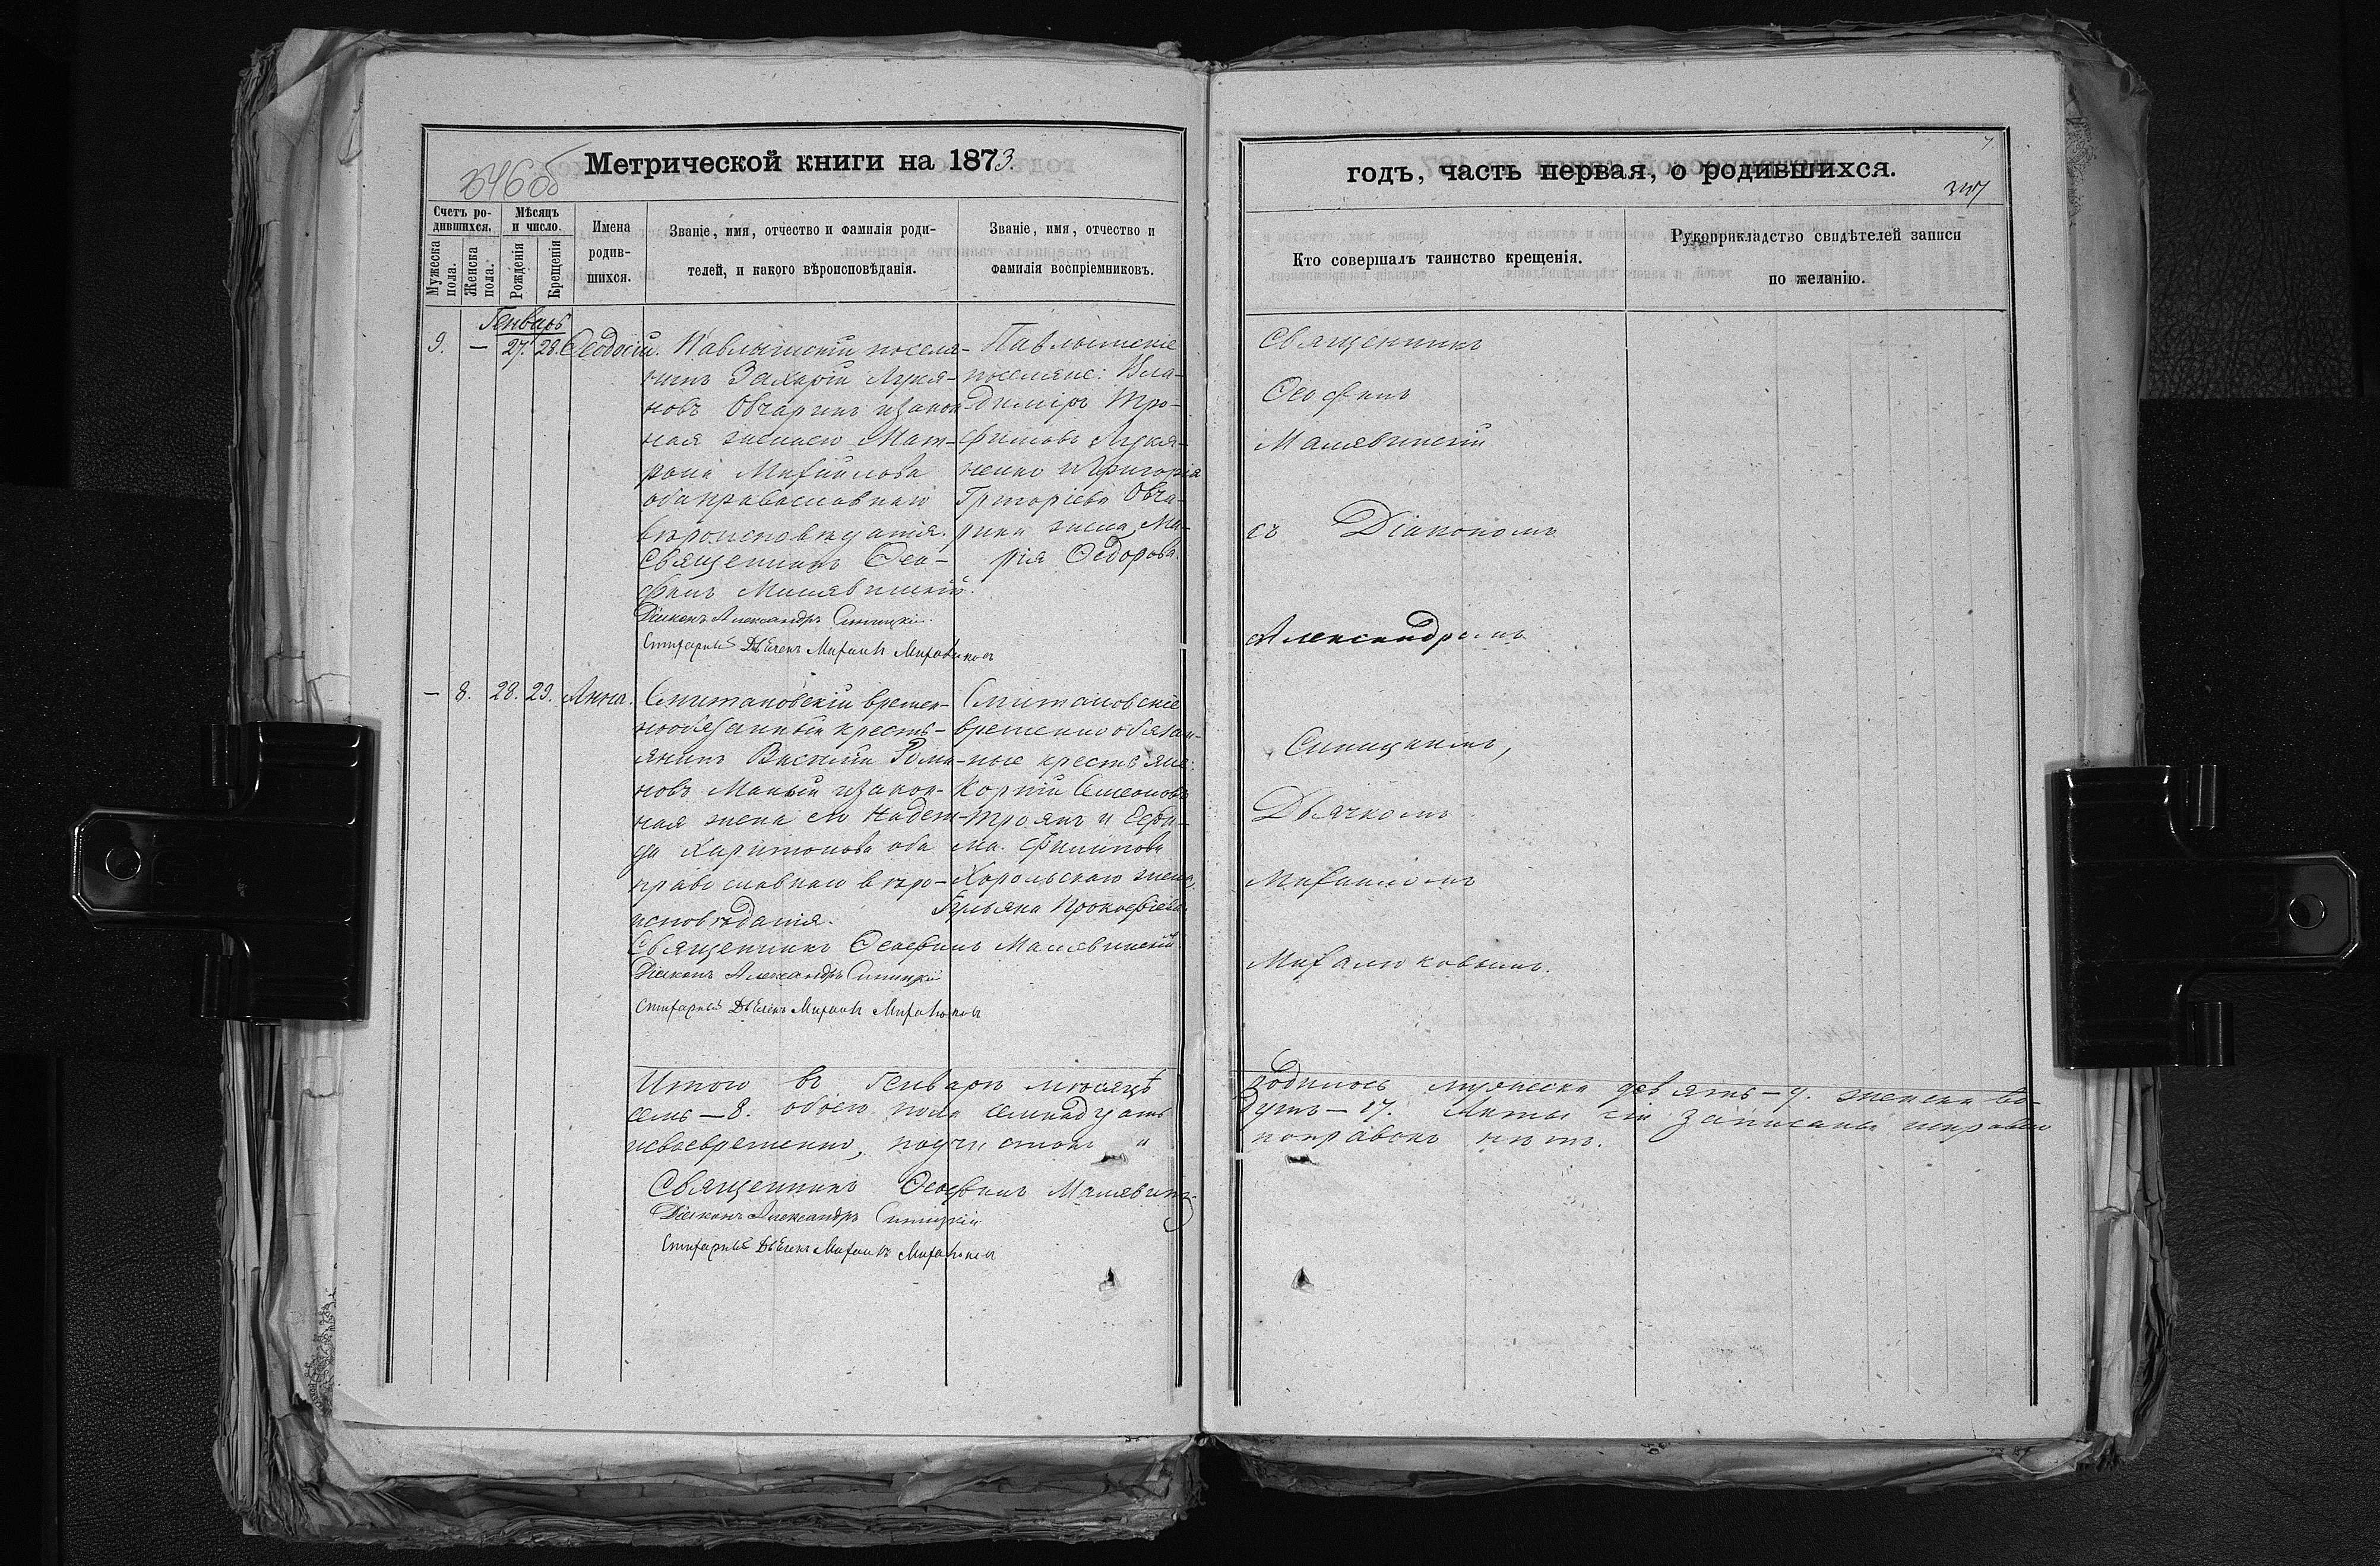 346 об
Метрической книги на 1873.
Счетъ родившихся.
Мужеска пола.
Женска пола.
Мѣсяцъ и число.
Рожденія
Крещенія
Имена родившихся.
Званіе, имя, отчество и фамилія роди-
телей, и какого вѣроисповѣданія.
Званіе, имя, отчество и
фамилія воспріемниковъ.
Генварь
9. — 27. 28. Ѳеодосій.
Павлышскій поселя-
нинъ Захарій Лукя-
новъ Овчаринъ и закон-
ная жена его Мат-
рона Михайлова
оба православнаго
вѣроисповѣданія.
Священникъ Ѳео-
филъ Малявинскій.
Діаконъ Александръ Синицкій
Стихарный Дьячекъ Михаилъ
Павлышскіе
поселяне: Вла-
димиръ Тро-
фимовъ Лукя-
ненко и Григорія
Григоріева Овча-
рина жена Ма-
рія Ѳедорова.
— 8. 28. 29. Анна.
временнообязанный кресть-
янинъ Василій Рома-
новъ Малый и закон-
ная жена его Надеж-
да Харитонова оба
православнаго вѣро-
исповѣданія.
Священникъ Ѳеофилъ Малявинскій
Діаконъ Александръ Синицкій
Стихарный Дьячекъ Михаилъ
временнообязан-
ные крестьяне:
Корній Симеоновъ
Троянъ и
Филипова
Хорольскаго жена
Прокофіева.
Итого въ Генварѣ мѣсяцѣ
семь — 8. обоего пола семнадцать
исвоевременно, подчистокъ „
Священникъ Ѳеофилъ
Діаконъ Александръ Синицкій
Стихарный Дьячекъ Михаилъ
годъ, часть первая, о родившихся.
347
Кто совершалъ таинство крещенія.
Рукоприкладство свидѣтелей записи
по желанію.
Священникъ
Ѳеофилъ
Малявинскій
съ Діакономъ
Александромъ
Синицкимъ,
Дьячкомъ
Михаиломъ
родилось мужеска девять — 9. женска во-
— 17. Акты сіи записаны исправно
поправокъ нѣтъ.